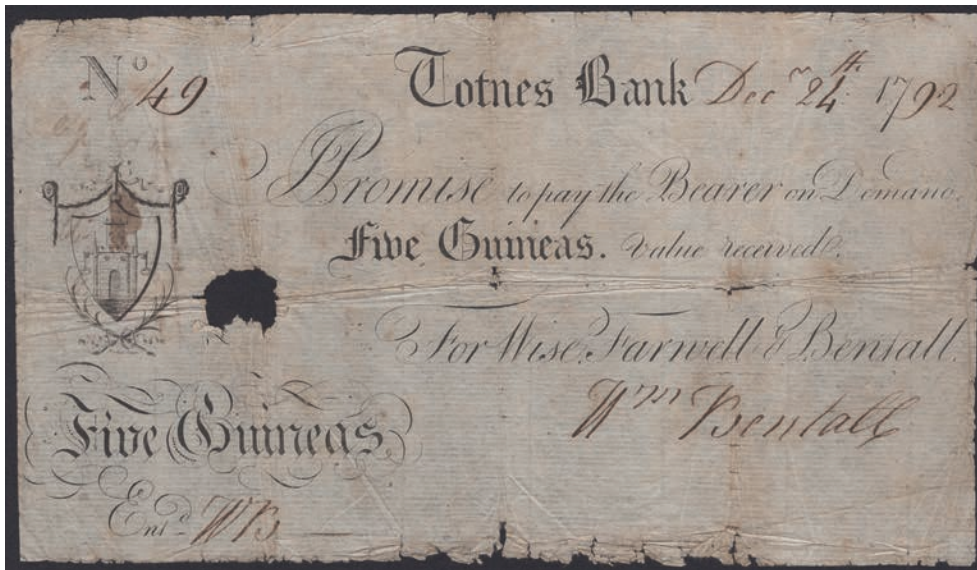 No 49 Totnes Bank Decr 24th 1792
I Promise to pay the Bearer on Demand
Five Guineas. Value received.
For Wise, Farwell & Bentall.
Wm Bentall
Five Guineas
Entd WB